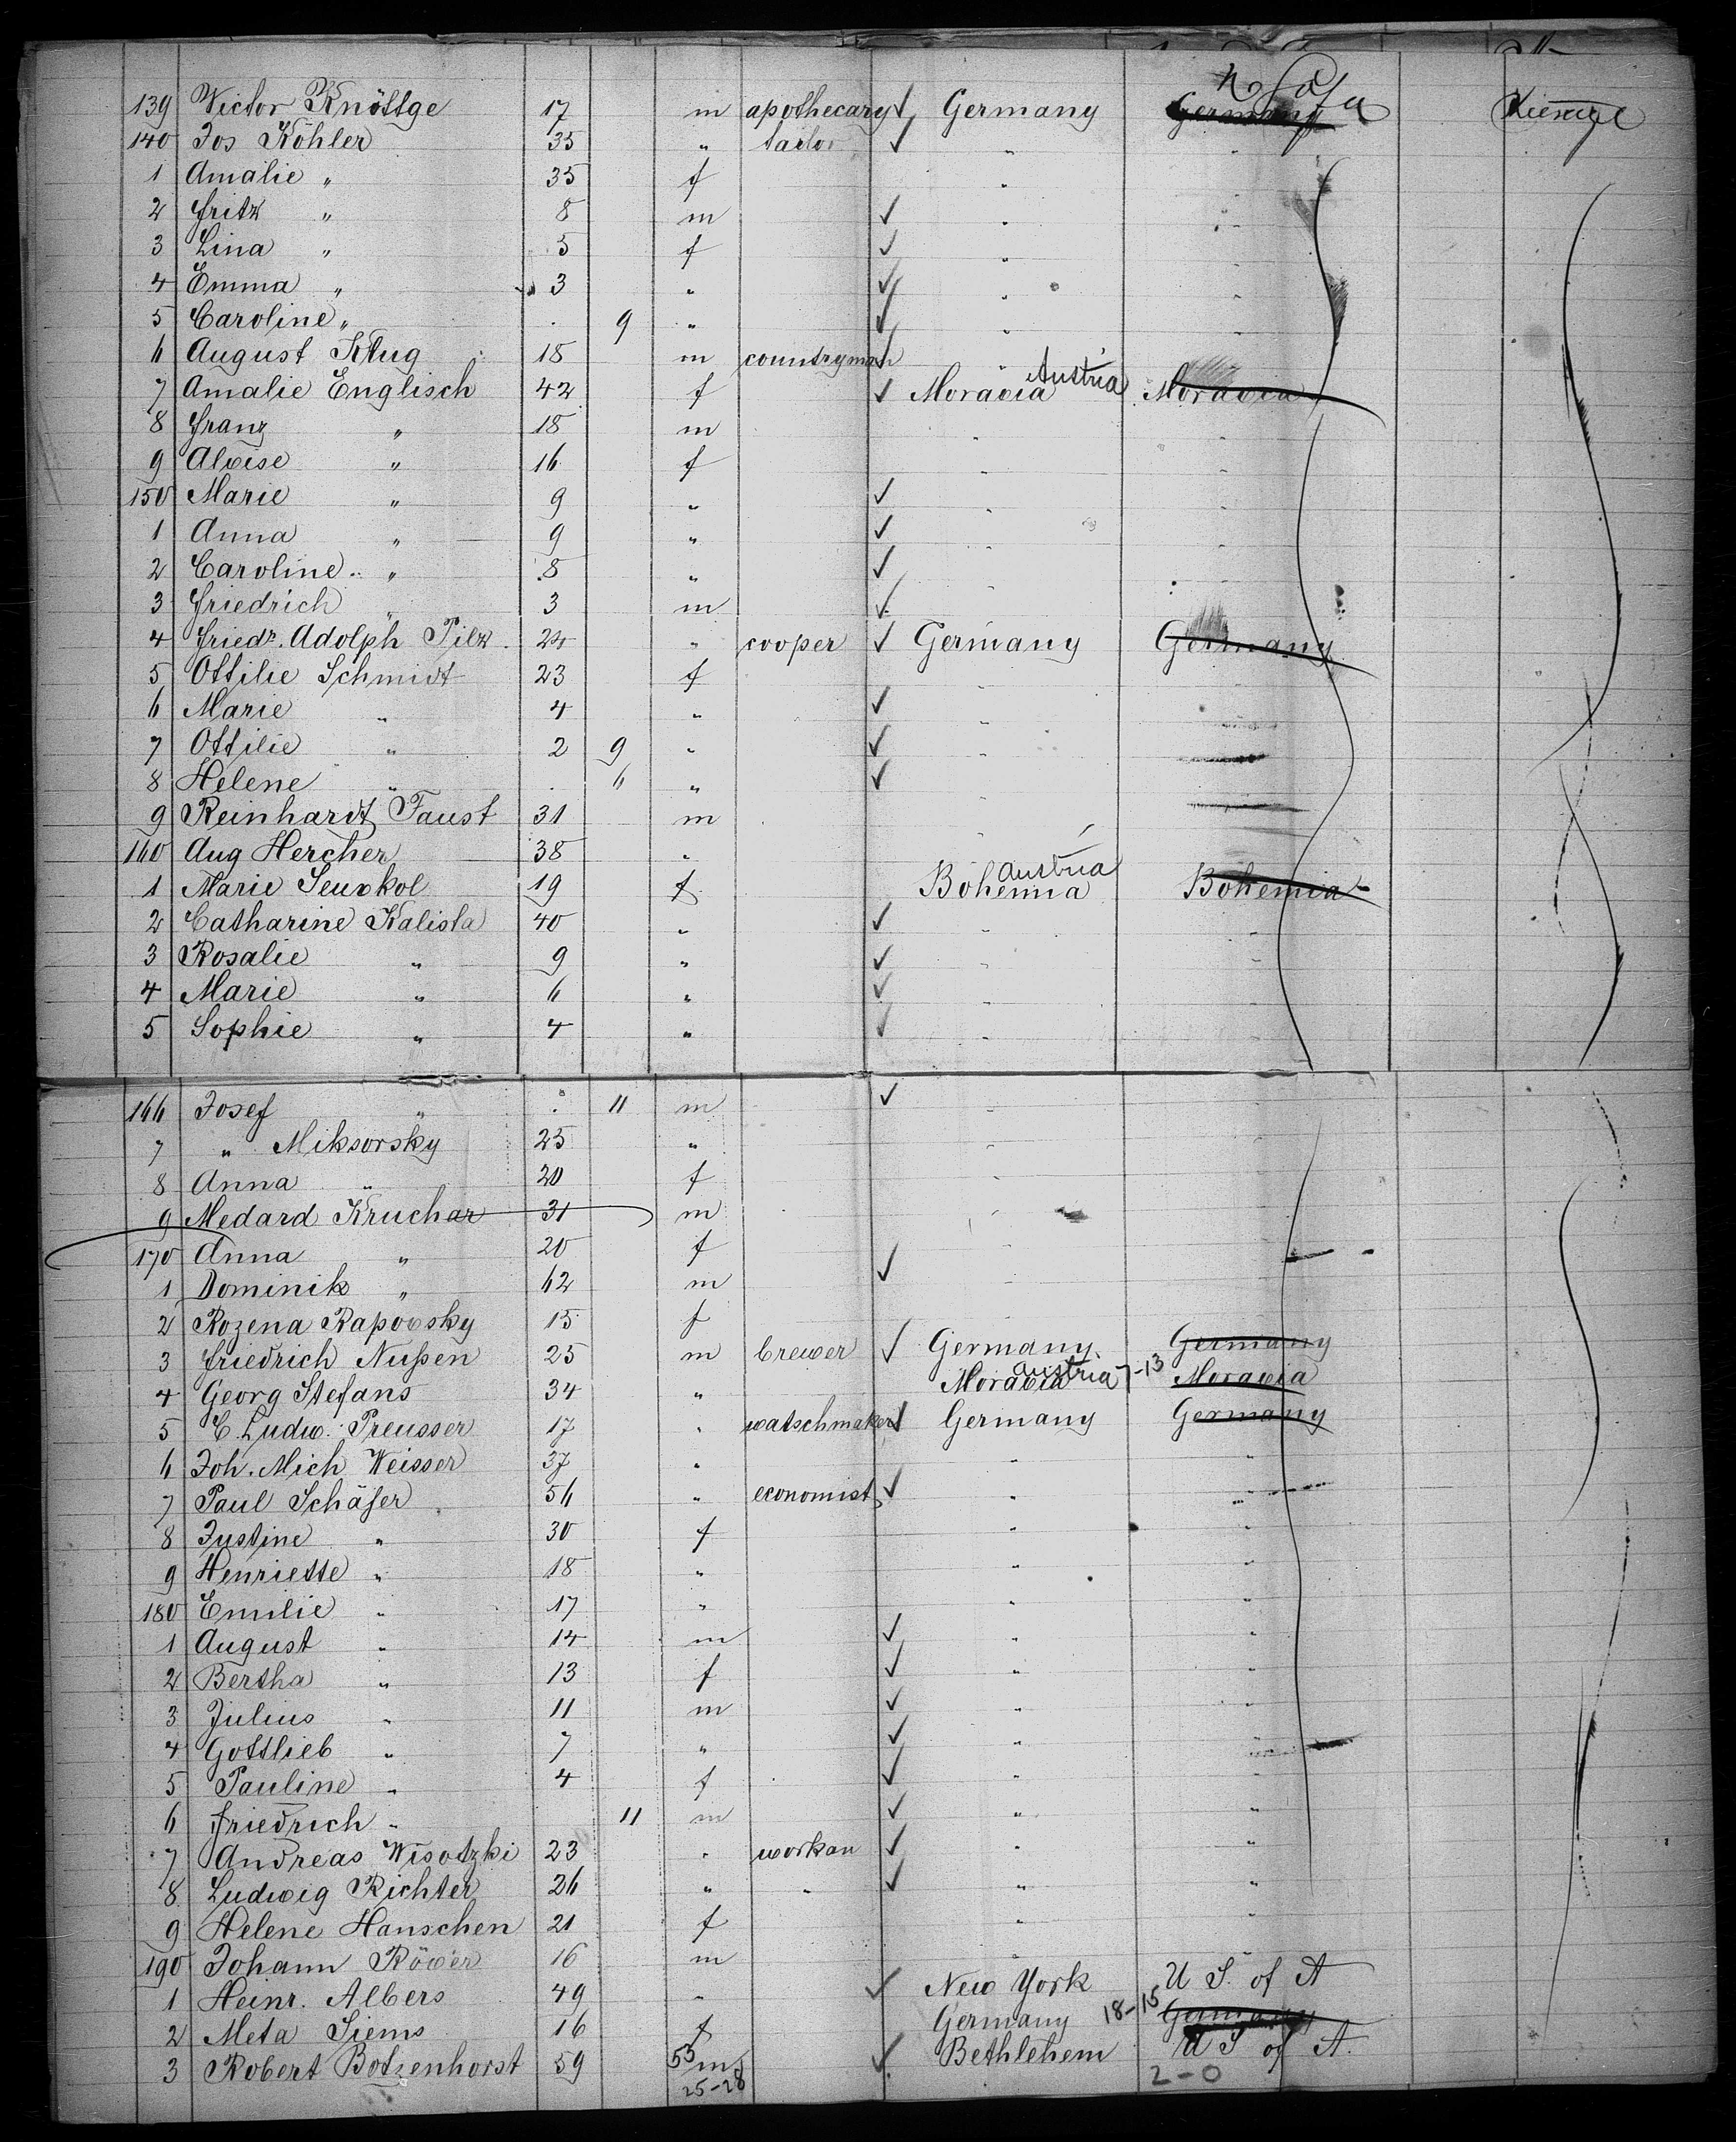 139 Victor Knöttge 17 m apothecary ✓ Germany U S of A Germany
140 Jos Köhler 35 " tailor ✓ " "
1 Amalie " 35 f "
2 Fritz " 8 m ✓ " "
3 Lina " 5 f ✓ " "
4 Emma " 3 " ✓ " "
5 Caroline " . 9 " ✓ " "
6 August Klug 18 m countryman ✓ "
7 Amalie Englisch 42 f ✓ Moravia Austria Moravia
8 Franz " 18 m " "
9 Aloise " 16 f " "
150 Marie " 9 " ✓ " "
1 Anna " 9 " ✓ " "
2 Caroline " 8 " ✓ " "
3 Friedrich " 3 m ✓
4 Friedr. Adolph Pilz 24 " cooper ✓ Germany Germany
5 Ottilie Schmidt 23 f
6 Marie " 4 " ✓ "
7 Ottilie " 2 9 " ✓ "
8 Helene " . 6 " ✓ "
9 Reinhardt Faust 31 m "
160 Aug Hercher 38 "
1 Marie 19 f Bohemia Austria Bohemia
2 Catharine Kalista 40 " ✓ " "
3 Rosalie " 9 " ✓ " "
4 Marie " 6 " ✓ " "
5 Sophie " 4 " ✓ " "
166 Josef " . 11 m ✓ "
7 " Miksorsky 25 " "
8 Anna " 20 f "
9 Medard Kruchar 31 m "
170 Anna " 20 f ✓ "
1 Dominik " 62 m "
2 Rozena Rapovsky 15 f
3 Friedrich Nußen 25 m brewer ✓ Germany Germany
4 Georg Stefans 34 " Moravia Austria 7-13 Moravia
5 C. Ludw. Preusser 17 " watschmaker ✓ Germany Germany
6 Joh. Mich Weisser 37 " " "
7 Paul Schäfer 56 " economist ✓ " "
8 Justine " 30 f " "
9 Henriette " 18 " " "
180 Emilie " 17 " " "
1 August " 14 m ✓ " "
2 Bertha " 13 f ✓ " "
3 Julius " 11 m ✓ " "
4 Gottlieb " 7 " ✓ " "
5 Pauline " 4 f ✓ " "
6 Friedrich " 11 m ✓ " "
7 Andreas Wisotzki 23 " workan ✓ " "
8 Ludwig Richter 26 " " ✓ " "
9 Helene Hanschen 21 f " "
190 Johann Röver 16 m " "
1 Heinr. Albers 49 " ✓ New York U S. of A
2 Meta Siems 16 f Germany 18-15 Germany
3 Robert Botzenhorst 59 m ✓ Bethlehem U S of A.
53
25-28 2-0